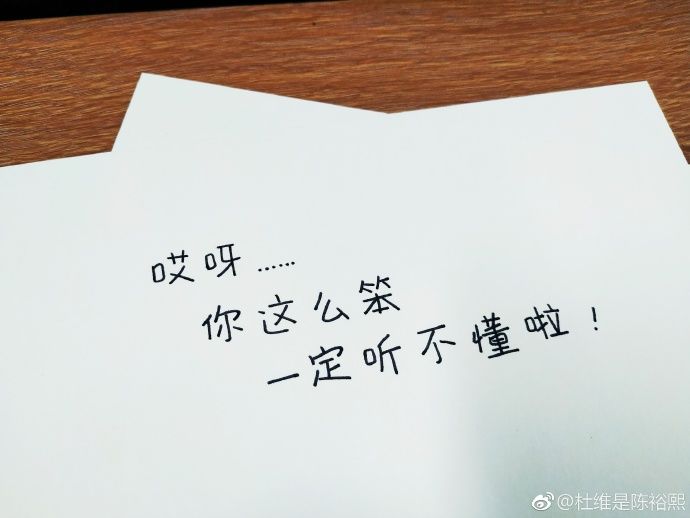 哎呀……
你这么笨
一定听不懂啦！
@杜维是陈裕熙